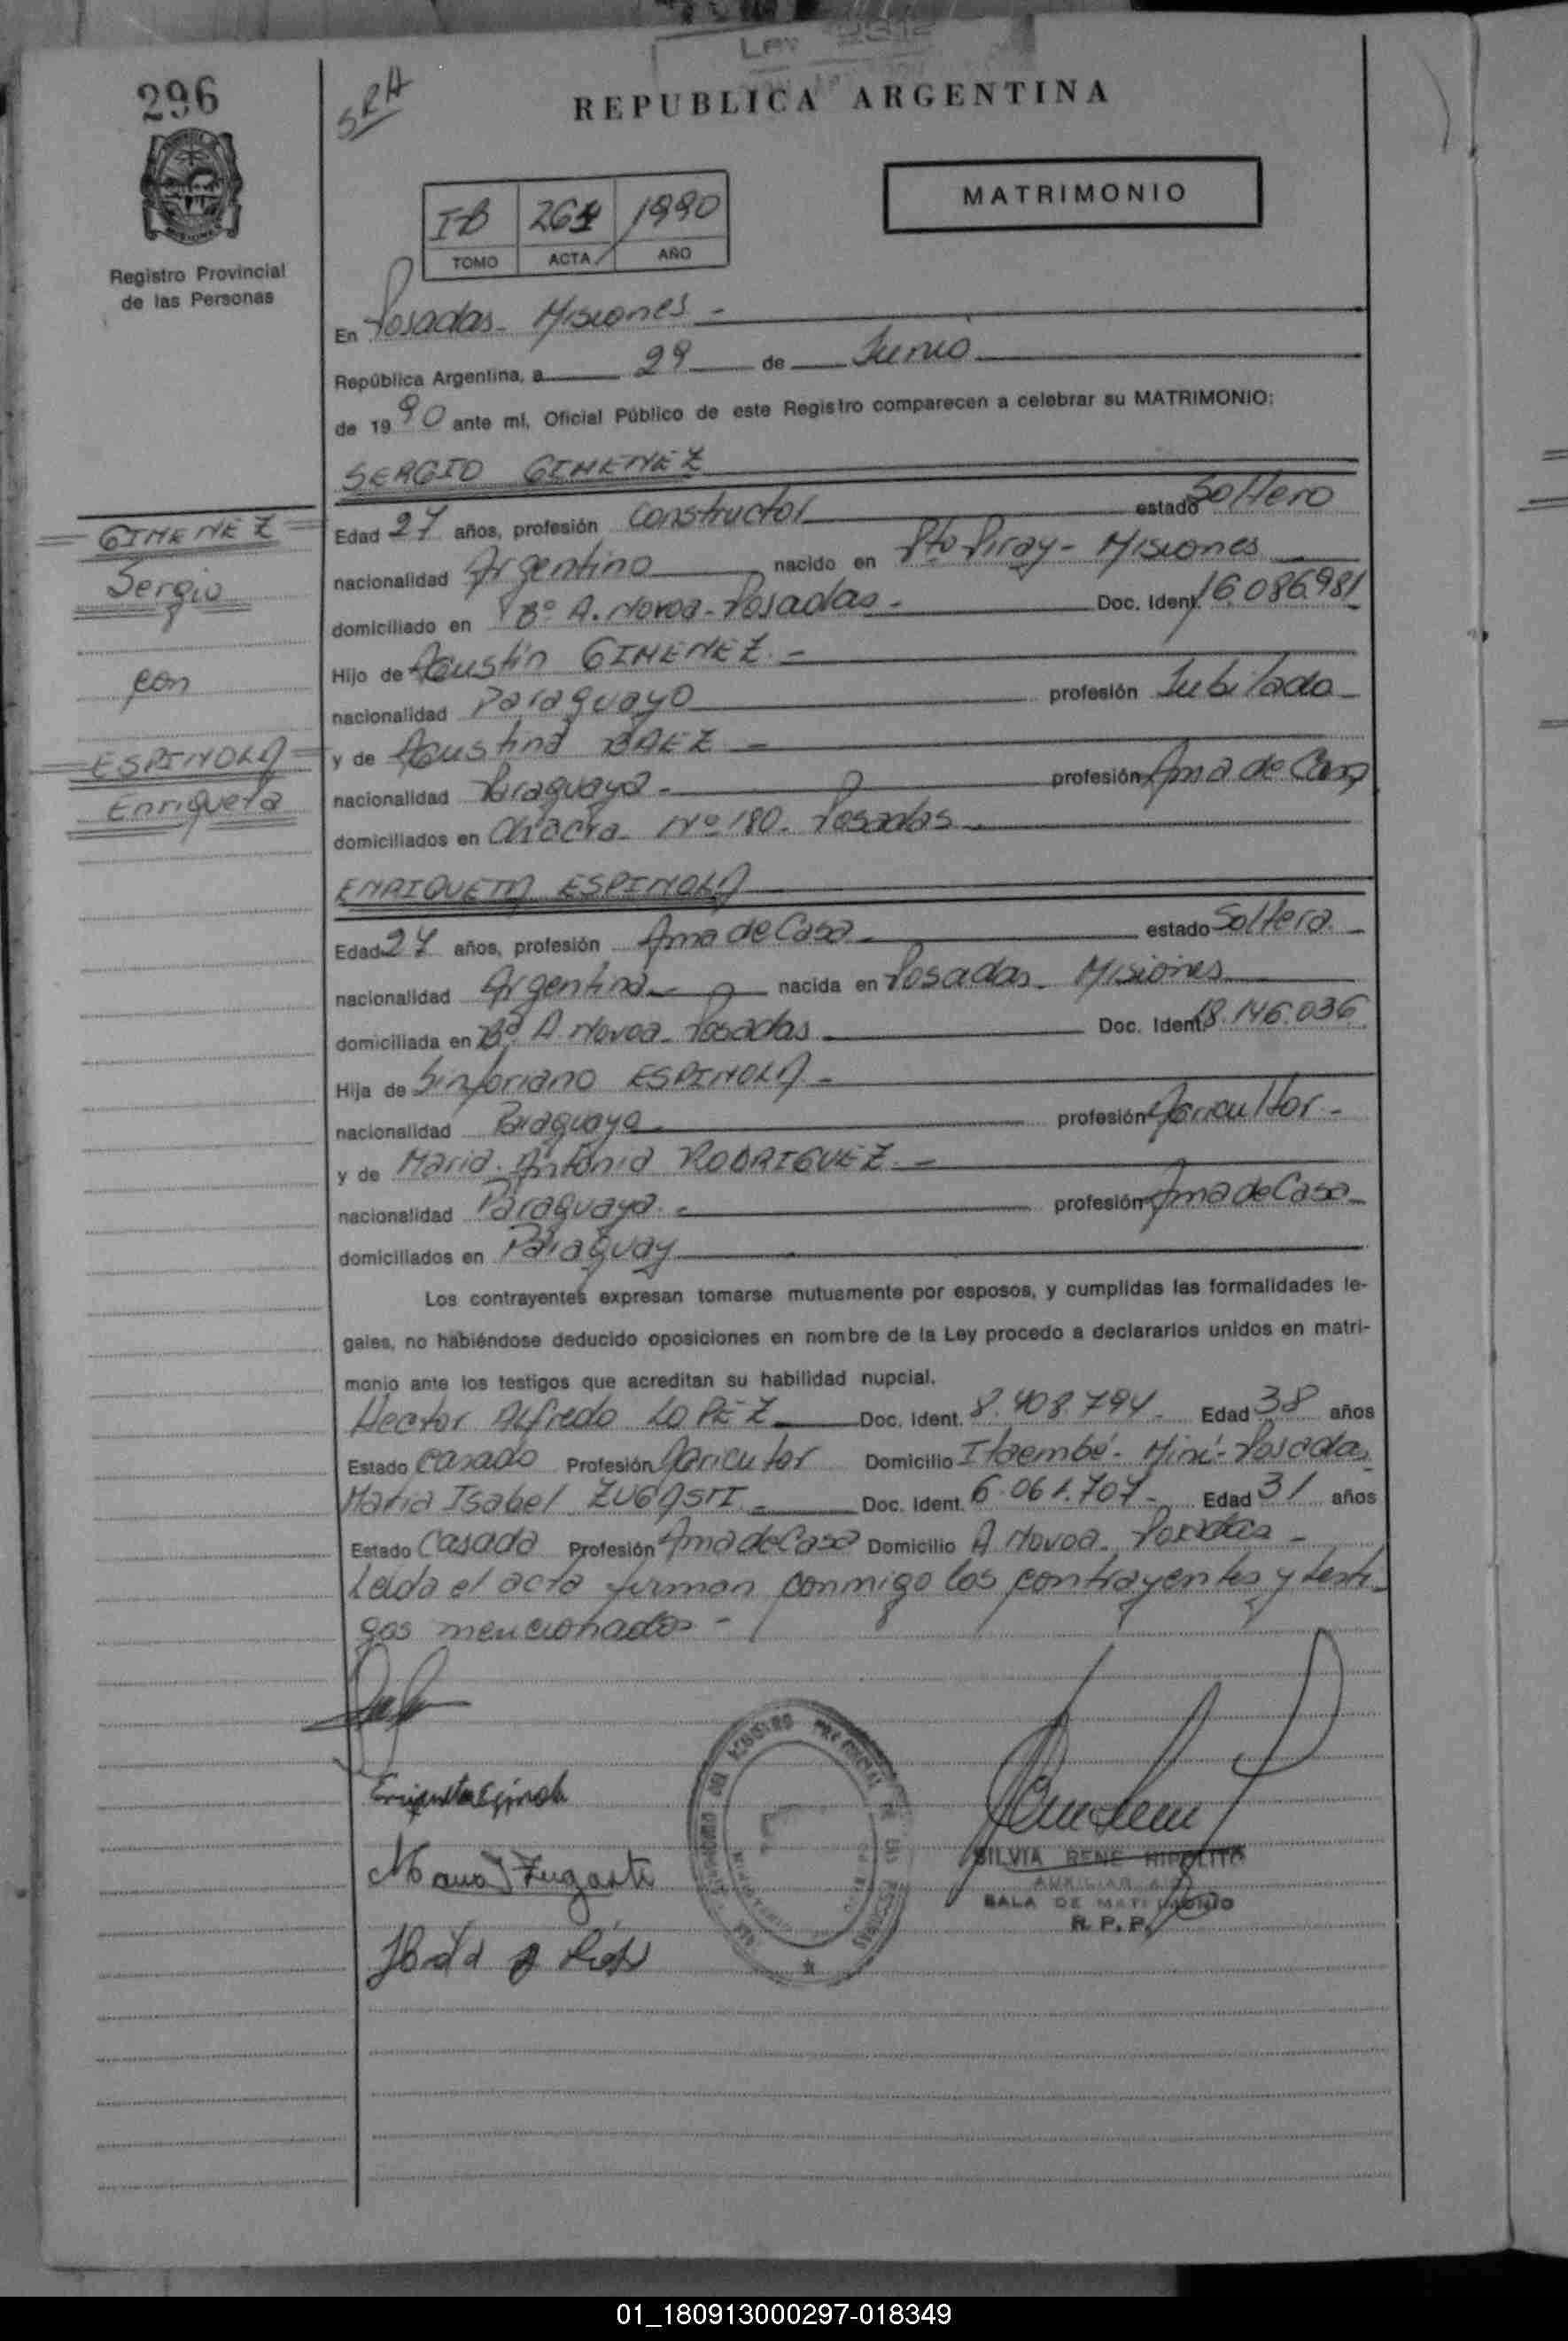 296
SRA
REPUBLICA ARGENTINA
MATRIMONIO
I-B 1990
TOMO ACTA AÑO
Registro Provincial
de las Personas
En Posadas - Misiones -
República Argentina, a 29 de Junio
de 1990 ante mí, Oficial Público de este Registro comparecen a celebrar su MATRIMONIO:
SERGIO GIMENEZ
GIMENEZ
Sergio
con
ESPINOLA
Enriqueta
Edad 27 años, profesión Constructor estado Soltero
nacionalidad Argentino nacido en Pto Piray - Misiones
domiciliado en Bº A. Novoa - Posadas - Doc. Ident. 16.086.981
Hijo de Agustín GIMENEZ. -
nacionalidad Paraguayo profesión Jubilado -
y de Agustina BAEZ -
nacionalidad Paraguaya - profesión Ama de Casa
domiciliados en Chacra Nº 180. Posadas -
ENRIQUETA ESPINOLA
Edad 27 años, profesión Ama de Casa - estado Soltera -
nacionalidad Argentina - nacida en Posadas - Misiones
domiciliada en Bº A. Novoa - Posadas Doc. Ident. 18.146.036
Hija de Sinforiano ESPINOLA -
nacionalidad Paraguayo profesión Agricultor -
y de Maria Antonia RODRIGUEZ. -
nacionalidad Paraguaya - profesión Ama de Casa -
domiciliados en Paraguay
Los contrayentes expresan tomarse mutuamente por esposos, y cumplidas las formalidades le-
gales, no habiéndose deducido oposiciones en nombre de la Ley procedo a declararlos unidos en matri-
monio ante los testigos que acreditan su habilidad nupcial.
Hector Alfredo LOPEZ Doc. Ident. 8.408.794 - Edad 38 años
Estado Casado Profesión Agricutor Domicilio Itaembé - Miní - Posadas
Maria Isabel ZUGASTI - Doc. Ident. 6.061.707 - Edad 31 años
Estado Casada Profesión Ama de Casa Domicilio A. Novoa - Posadas -
Leida el acta firman conmigo los contrayentes y testi-
gos mencionados -
Enriqueta Espinola
Maria I Zugasti
SILVIA RENE HIPOLITO
AUXILIAR
SALA DE MATRIMONIO
R. P. P.
01_180913000297-018349